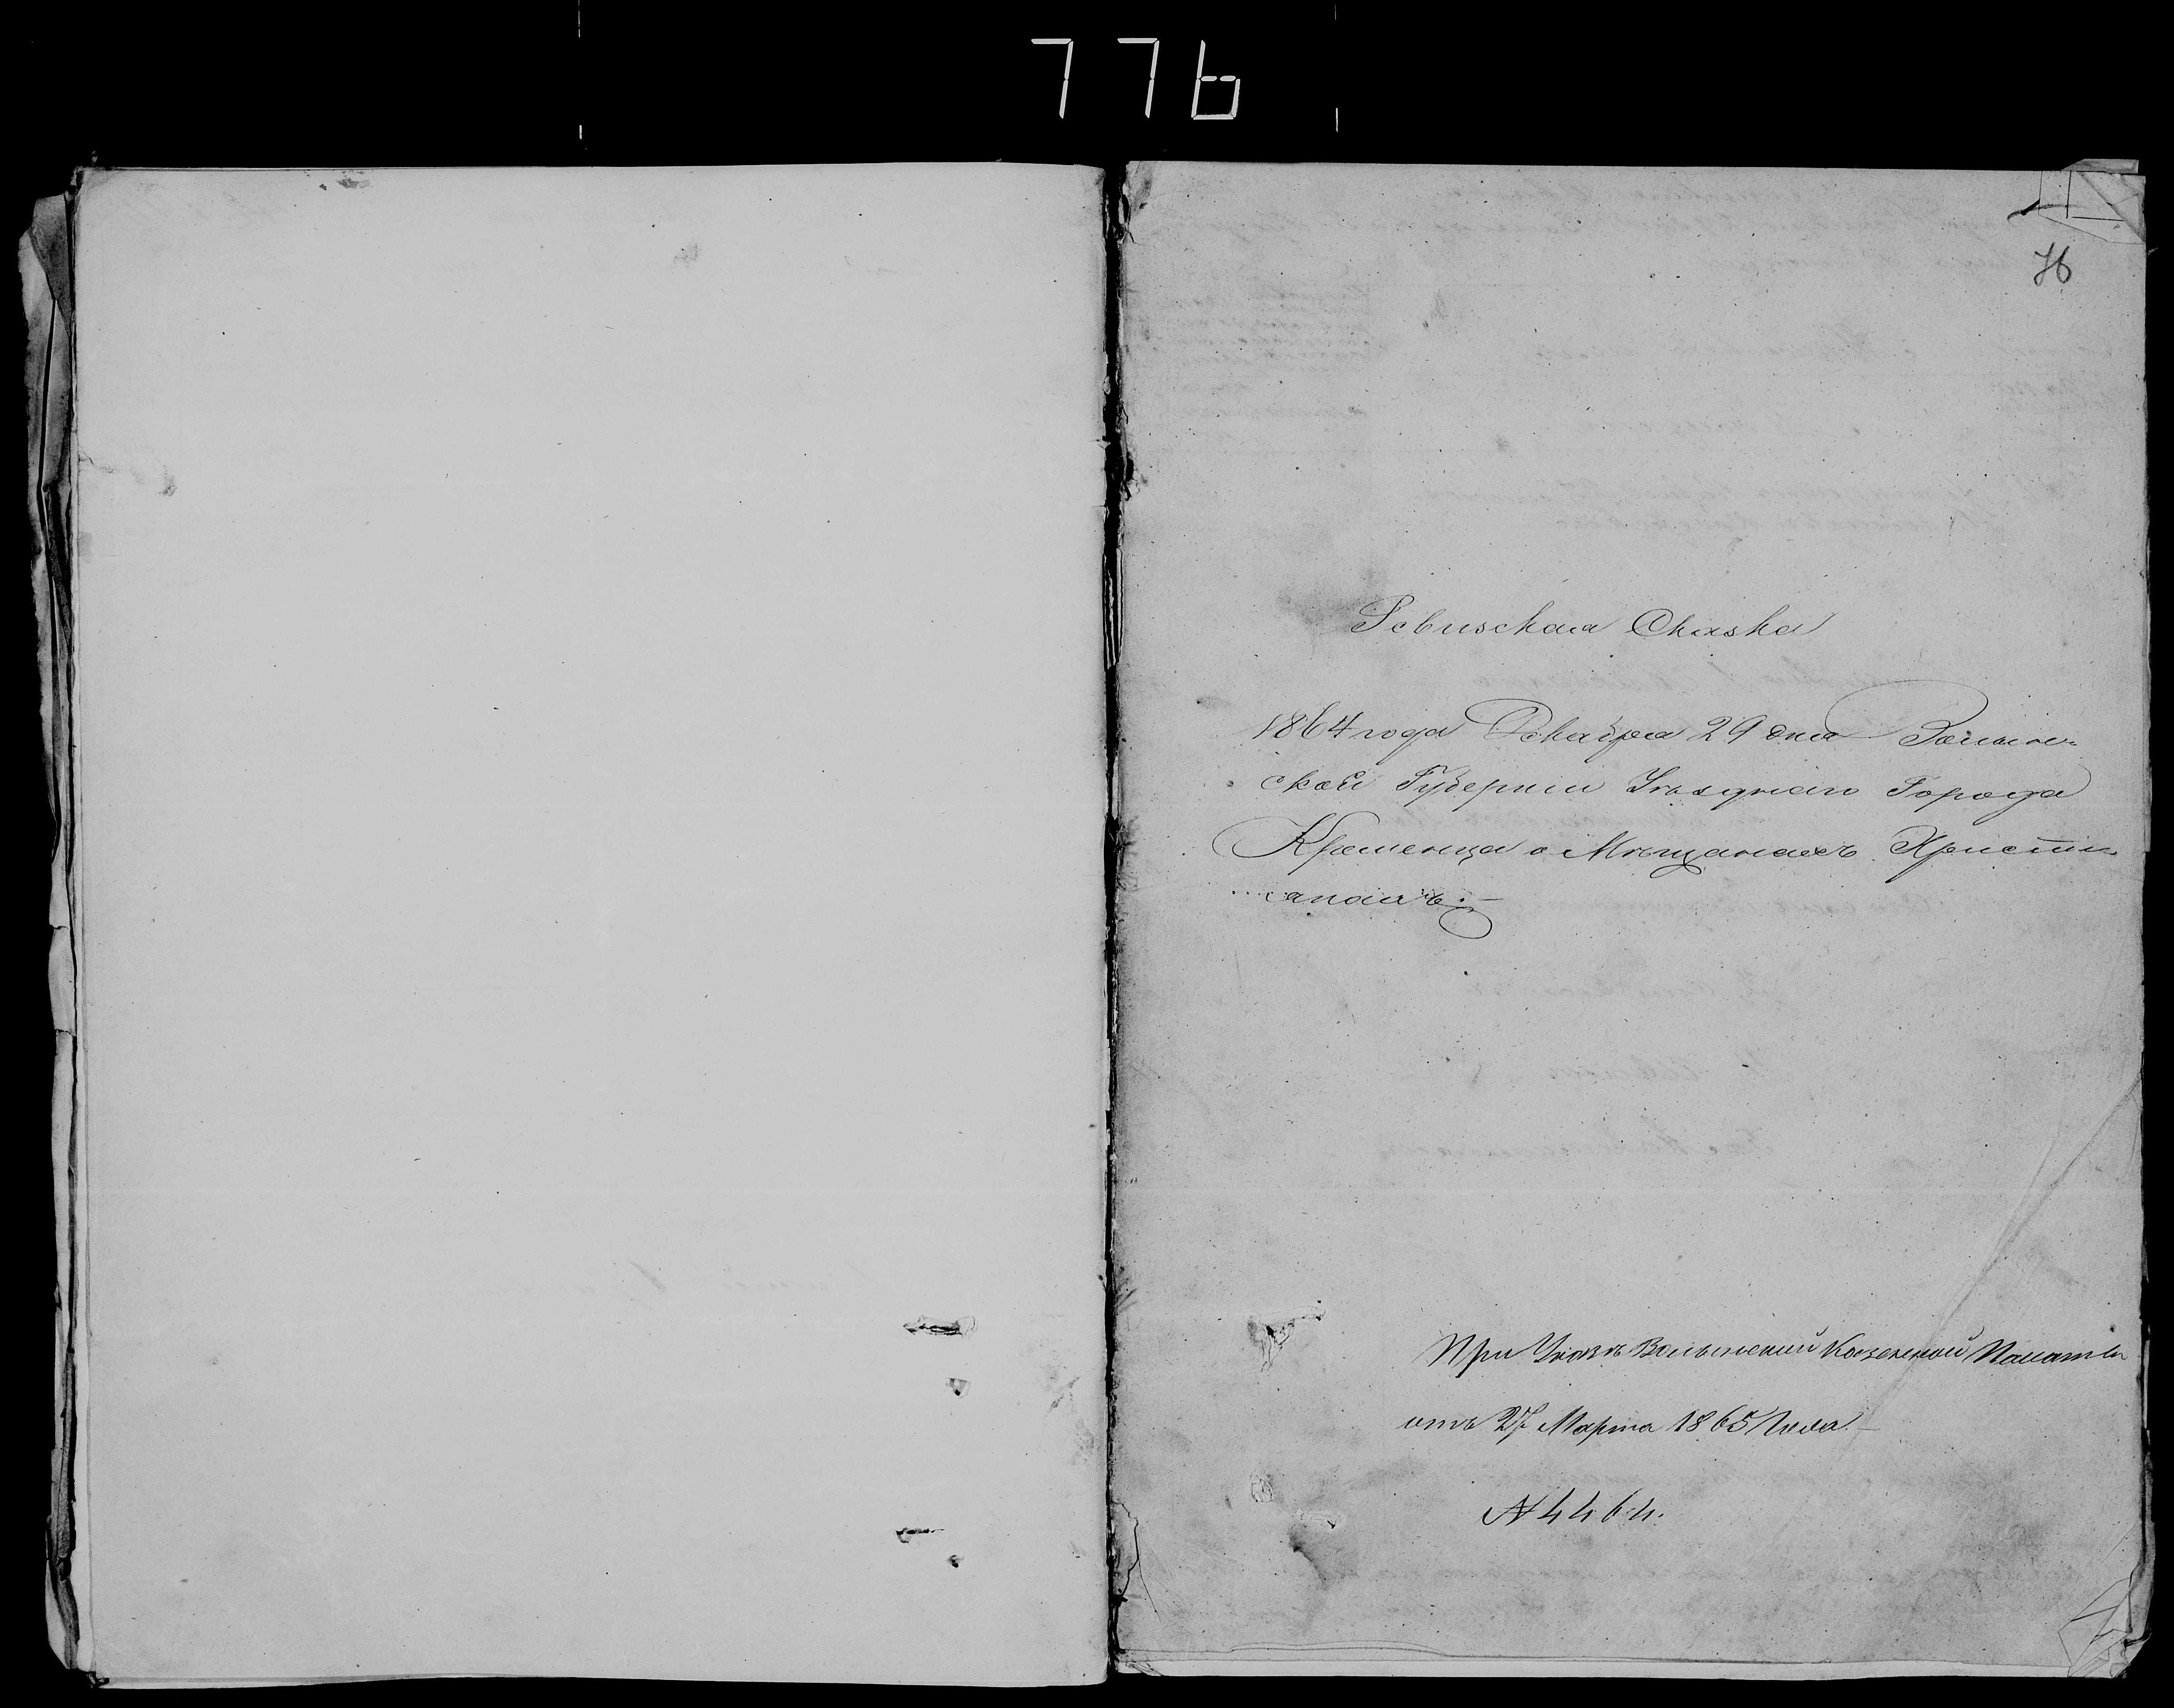 776
76
Ревизская Сказка
1864 года Декабря 29 дня Волын-
ской Губернии Уѣзднаго Города
Кременца о Мѣщанахъ Христи-
анахъ.
При Указѣ Волынской Казенной Палаты
отъ 27 Марта 1865 Года.
№ 4464.